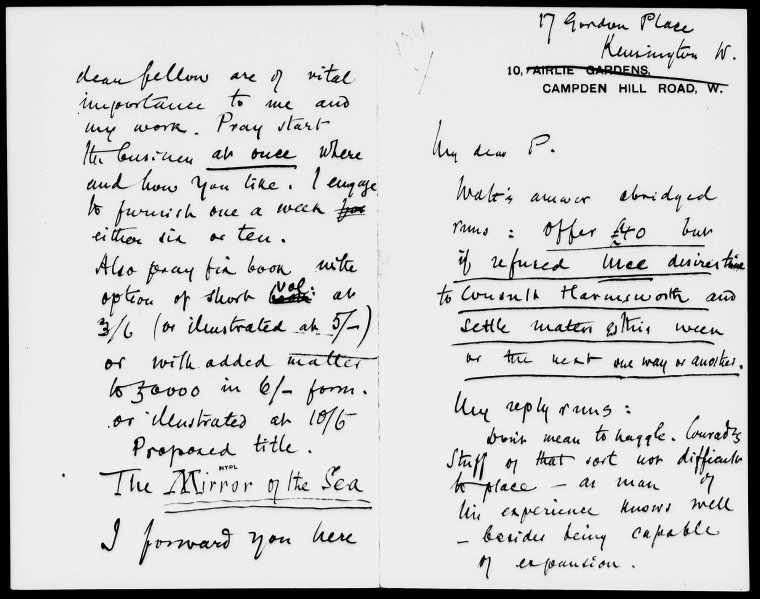 17 Gordon Place
Kensington W.
10, AIRLIE GARDENS,
CAMPDEN HILL ROAD, W.
My dear P.
Watt's answer abridged
runs: offer £40 but
if refused Mee desires time
to consult Harmsworth and
settle matters this week
or the next one way or another.
My reply runs:
Don't mean to haggle. Conrad's
stuff of that sort not difficult
to place – as man of
his experience knows well
– besides being capable
of expansion.
dear fellow are of vital
importance to me and
my work. Pray start
the business at once where
and how you like. I engage
to furnish one a week for
either six or ten.
Also pray fix book with
option of short vol: at
3/6 (or illustrated at 5/-)
or with added matter
to 30000 in 6/- form.
or illustrated at 10/6
Proposed title.
NYPL
The Mirror of the Sea
I forward you here